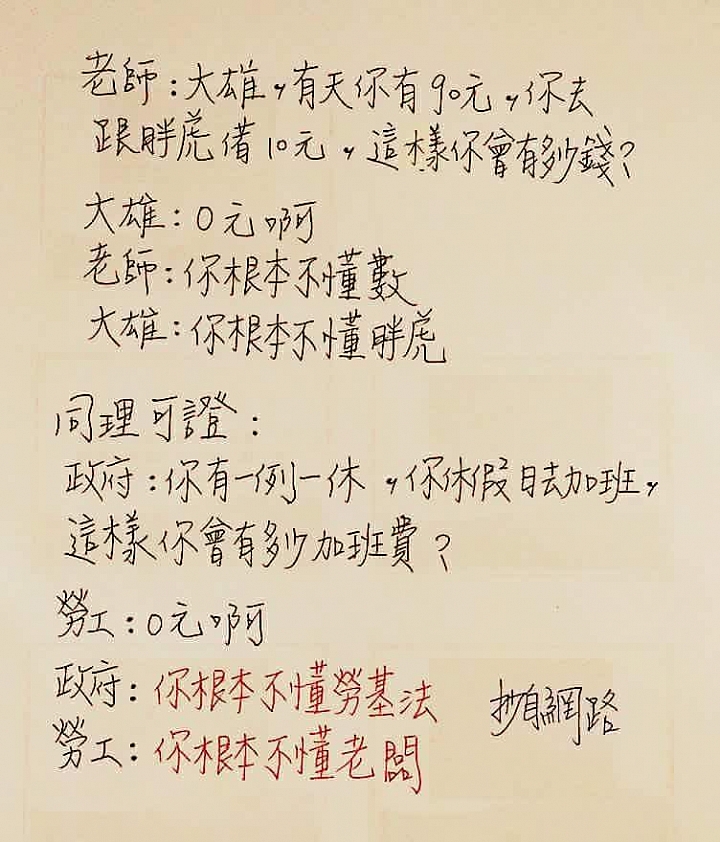 老師：大雄，有天你有90元，你去
跟胖虎借10元，這樣你會有多少錢？
大雄：0元啊
老師：你根本不懂數
大雄：你根本不懂胖虎
同理可證：
政府：你有一例一休，你休假日去加班，
這樣你會有多少加班費？
勞工：0元啊
政府：你根本不懂勞基法
勞工：你根本不懂老闆
抄自網路